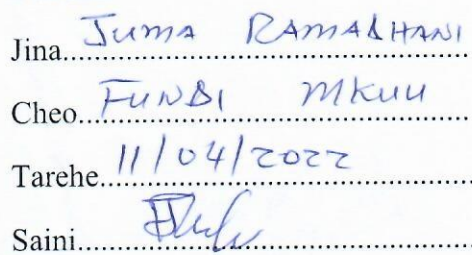 Jina JUMA RAMADHANI
Cheo FUNDI MKUU
Tarehe 11/04/2022
Saini